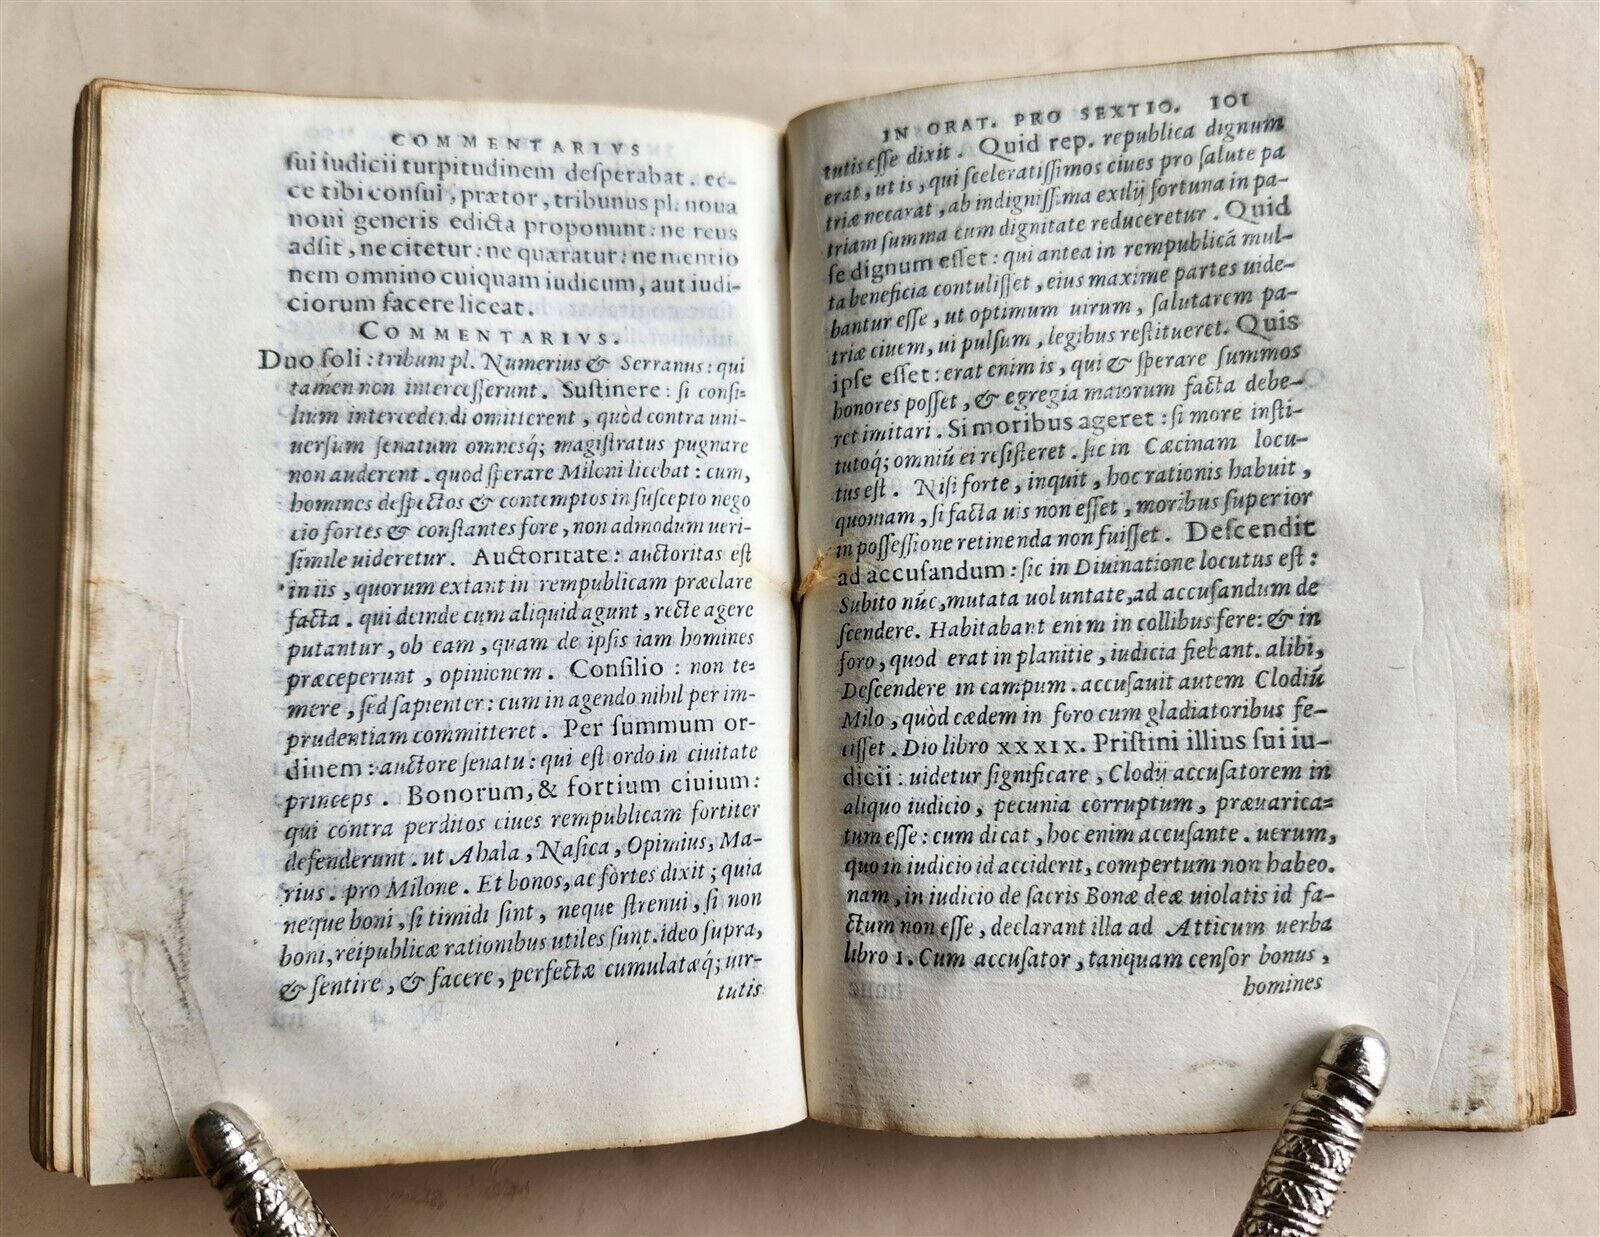 COMMENTARIVS
sui iudicii turpitudinem desperabat. ec-
ce tibi consul, prætor, tribunus pl. noua
noui generis edicta proponunt: ne reus
adsit, ne citetur: ne quæratur: ne mentio
nem omnino cuiquam iudicum, aut iudi-
ciorum facere liceat.
COMMENTARIVS.
Duo soli: tribum pl. Numerius & Serranus: qui
tamen non intercesserunt. Sustinere: si consi-
lium intercedendi omitterent, quòd contra uni-
uersum senatum omnesq; magistratus pugnare
non auderent. quod sperare Miloni licebat: cum,
homines despectos & contemptos in suscepto nego
cio fortes & constantes fore, non admodum ueri-
simile uideretur. Auctoritate: auctoritas est
in iis, quorum extant in rempublicam præclare
facta. qui deinde cum aliquid agunt, recte agere
putantur, ob eam, quam de ipsis iam homines
præceperunt, opinionem. Consilio: non te-
mere, sed sapienter: cum in agendo nihil per im-
prudentiam committeret. Per summum or-
dinem: auctore senatu: qui est ordo in ciuitate
princeps. Bonorum, & fortium ciuium:
qui contra perditos ciues rempublicam fortiter
defenderunt. ut Ahala, Nasica, Opimius, Ma-
rius. pro Milone. Et bonos, ac fortes dixit; quia
neque boni, si timidi sint, neque strenui, si non
boni, reipublicæ rationibus utiles sunt. ideo supra,
& sentire, & facere, perfectæ cumulatæq; uir-
tutis
IN ORAT. PRO SEXTIO. 101
tutis esse dixit. Quid rep. republica dignum
erat, ut is, qui sceleratissimos ciues pro salute pa
triæ necarat, ab indignissima exilij fortuna in pa-
triam summa cum dignitate reduceretur. Quid
se dignum esset: qui antea in rempublicā mul-
ta beneficia contulisset, eius maxime partes uide-
bantur esse, ut optimum uirum, salutarem pa-
triæ ciuem, ui pulsum, legibus restitueret. Quis
ipse esset: erat enim is, qui & sperare summos
honores posset, & egregia maiorum facta debe-
ret imitari. Si moribus ageret: si more insti-
tutoq; omniū ei resisteret. sic in Cæcinam locu-
tus est. Nisi forte, inquit, hoc rationis habuit,
quoniam, si facta uis non esset, moribus superior
in possessione retinenda non fuisset. Descendit
ad accusandum: sic in Diuinatione locutus est:
Subito nūc, mutata uoluntate, ad accusandum de
scendere. Habitabant enim in collibus fere: & in
foro, quod erat in planitie, iudicia fiebant. alibi,
Descendere in campum. accusauit autem Clodiū
Milo, quòd cædem in foro cum gladiatoribus fe-
cisset. Dio libro XXXIX. Pristini illius sui iu-
dicii: uidetur significare, Clodij accusatorem in
aliquo iudicio, pecunia corruptum, præuarica-
tum esse: cum dicat, hoc enim accusante. uerum,
quo in iudicio id acciderit, compertum non habeo.
nam, in iudicio de sacris Bonæ deæ uiolatis id fa-
ctum non esse, declarant illa ad Atticum uerba
libro 1. Cum accusator, tanquam censor bonus,
homines